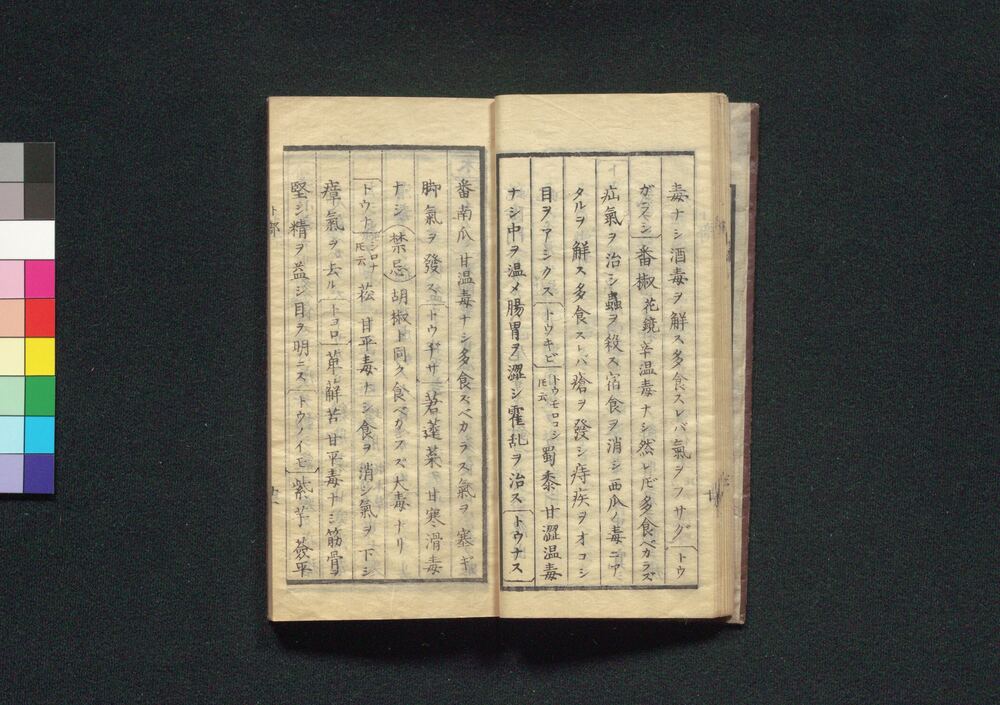 毒ナシ酒毒ヲ解ス多食スレバ氣ヲフサグ「トウ
ガラシ」番椒 花鏡 辛温毒ナシ然レ𪜈多食ベカラズ
疝氣ヲ治シ蟲ヲ殺ス宿食ヲ消シ西瓜ノ毒ニア
タルヲ解ス多食スレバ瘡ヲ發シ痔疾ヲオコシ
目ヲアシクス「トウキビ」トウモロコシ𪜈云 蜀黍 甘澀温毒
ナシ中ヲ温メ腸胃ヲ澀シ霍乱ヲ治ス「トウナス」
番南瓜 甘温毒ナシ多食スベカラス氣ヲ塞ギ
脚氣ヲ發ス「トウヂサ」莙薘菜 甘寒滑毒
ナシ 禁忌 胡椒ト同ク食ベカラズ大毒ナリ
「トウナ」シロナ𪜈云 菘 甘平毒ナシ食ヲ消シ氣ヲ下シ
瘴氣ヲ去ル「トコロ」萆薢 苦甘平毒ナシ筋骨ヲ
堅シ精ヲ益シ目ヲ明ニス「トウノイモ」紫芋 薟平
ト部